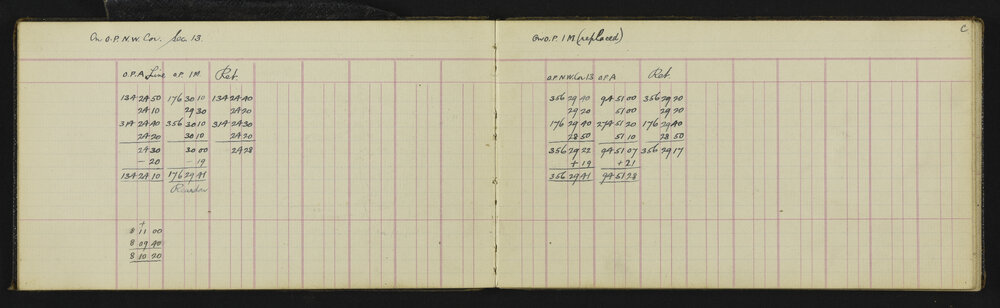 On O.P. N.W. Cor. Sec. 13.
O.P.A Line O.P. 1M Ret.
134 24 50 176 30 10 134 24 40
24 10 29 30 24 20
314 24 40 356 30 10 314 24 30
24 20 30 10 24 20
24 30 30 00 24 28
- 20 - 19
134 24 10 176 29 41
8 11 00
8 09 40
8 10 20
C
On O.P. 1M (replaced)
O.P. N.W. Cor 13 O.P.A Ret.
356 29 40 94 51 00 356 29 20
29 20 51 00 29 20
176 29 40 274 51 20 176 29 40
28 50 51 10 28 50
356 29 22 94 51 07 356 29 17
+ 19 + 21
356 29 41 94 51 28